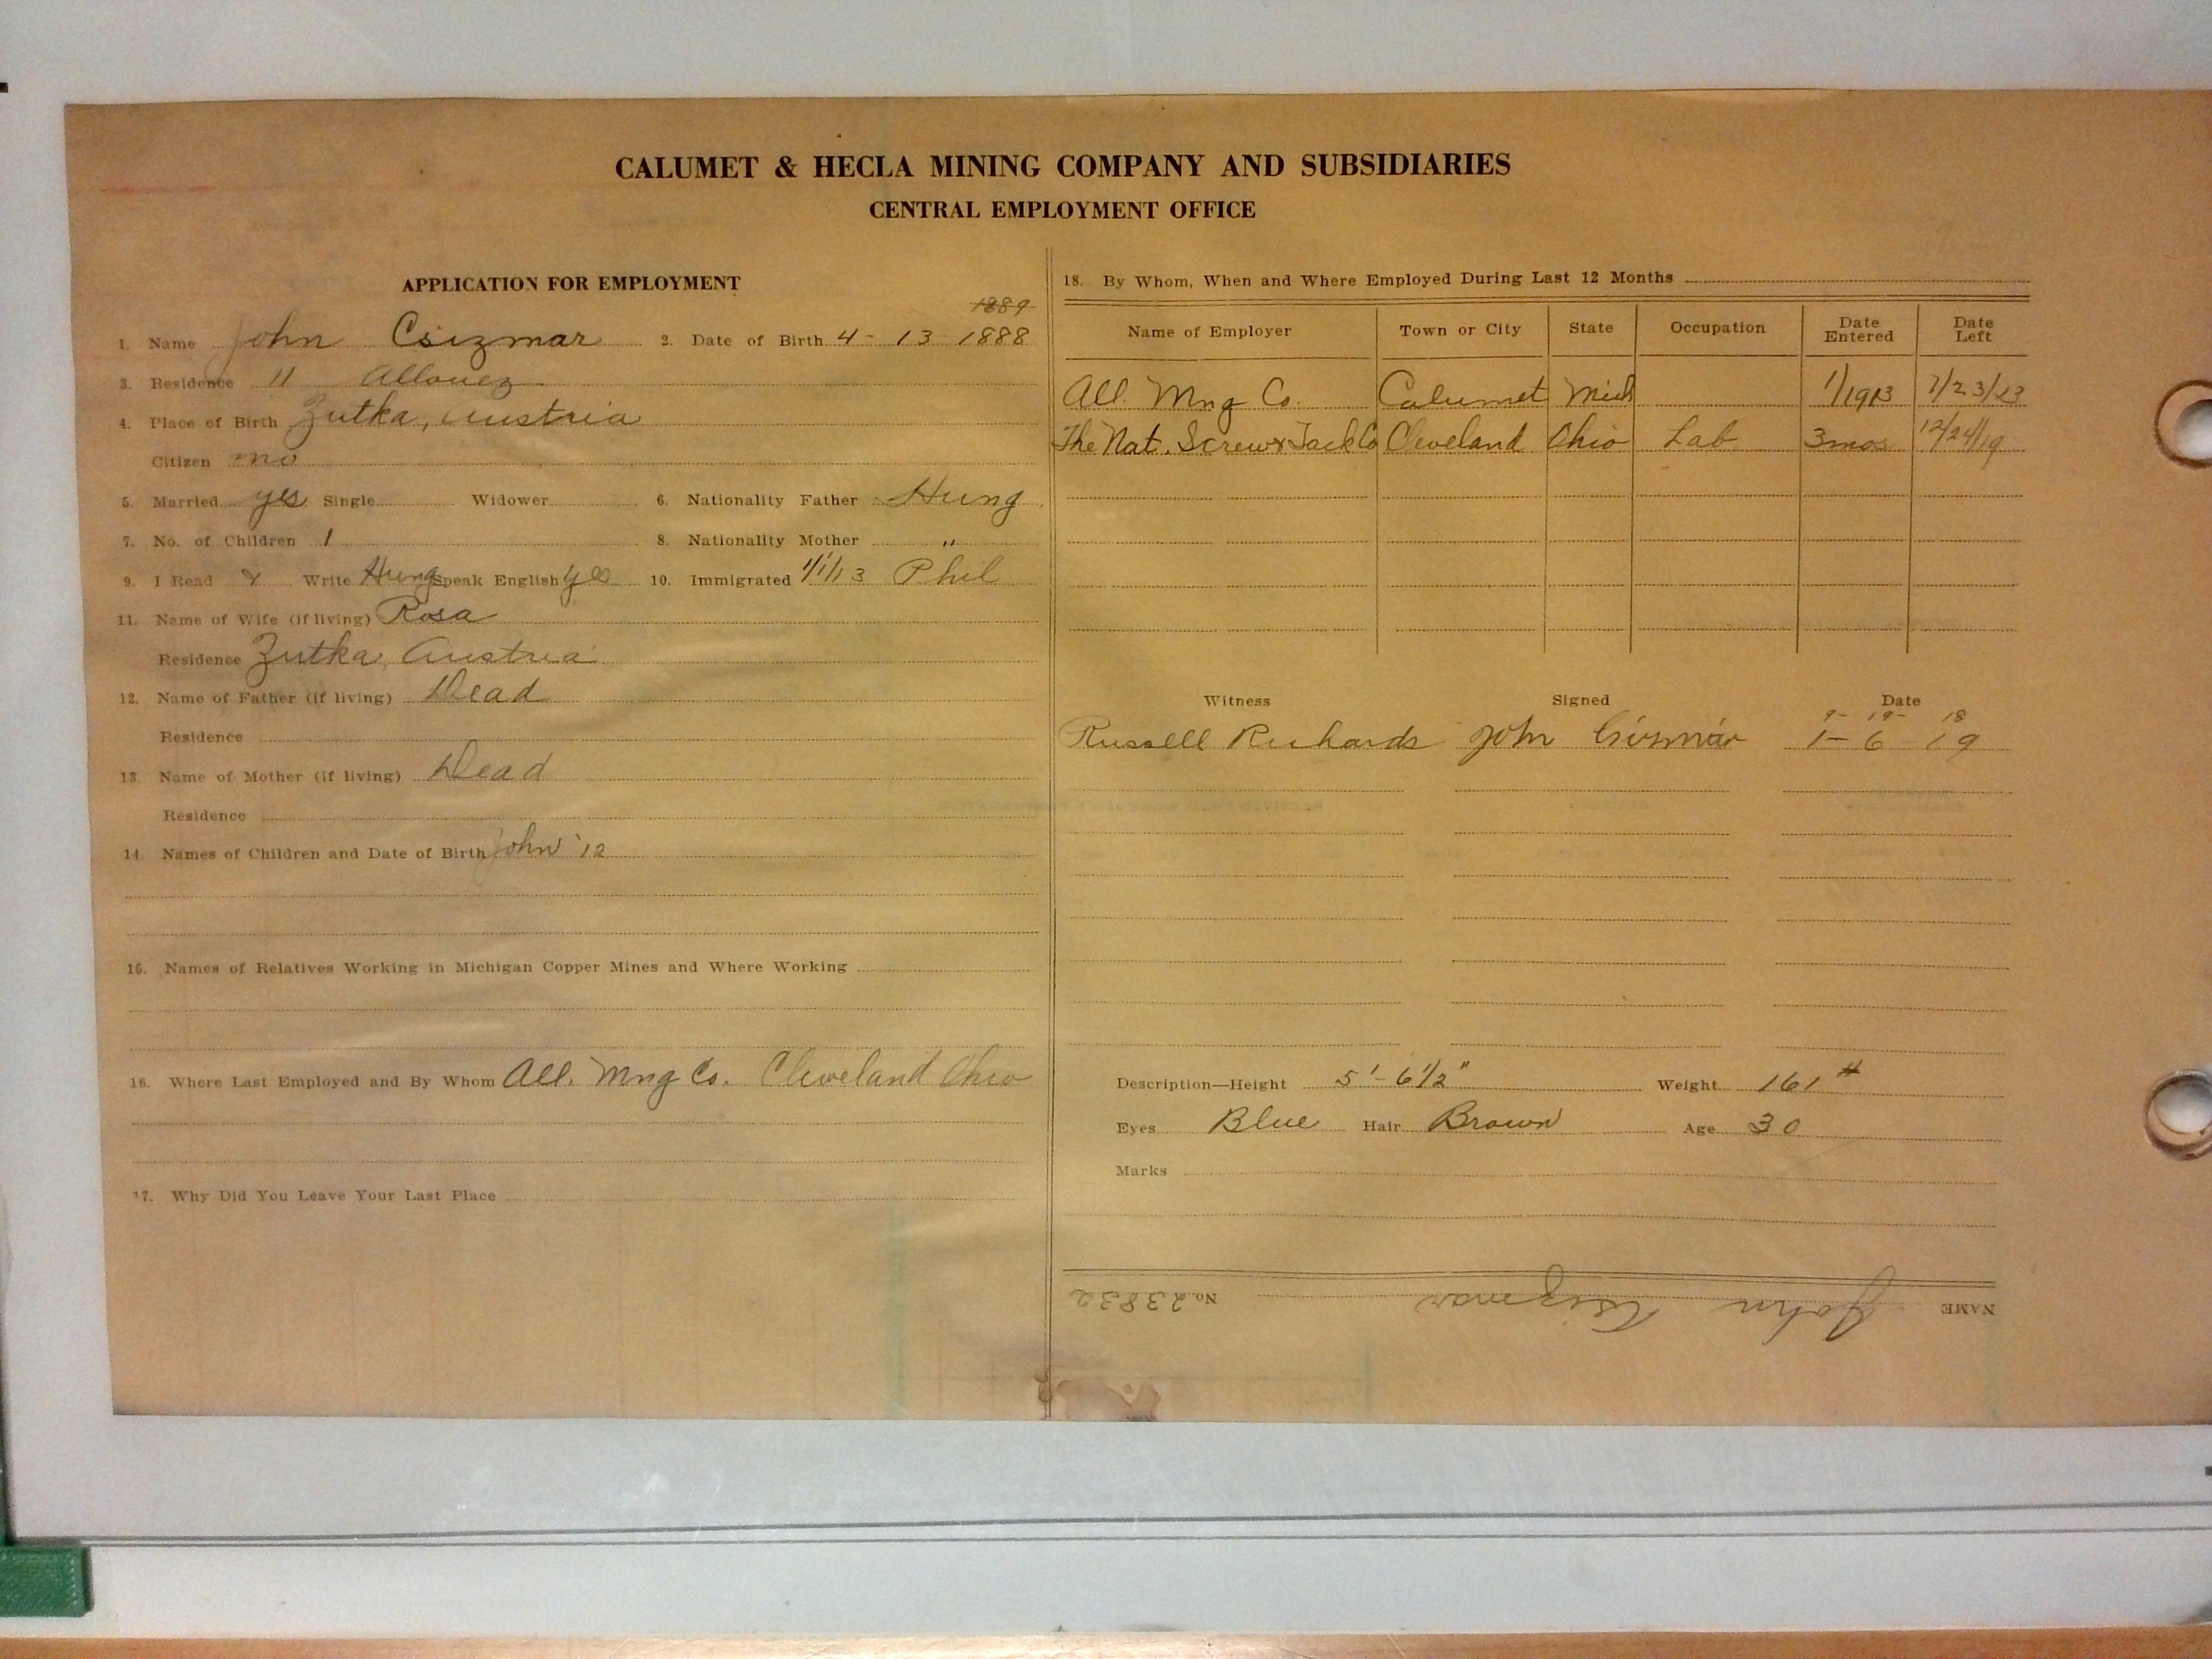 CALUMET & HECLA MINING COMPANY AND SUBSIDIARIES
CENTRAL EMPLOYMENT OFFICE
APPLICATION FOR EMPLOYMENT
1889
1. Name John Csizmar 2. Date of Birth 4 - 13 - 1888
3. Residence 11 Allouez
4. Place of Birth Zutka, Austria
Citizen no
5. Married yes Single Widower 6. Nationality Father Hung
7. No. of Children 1 8. Nationality Mother "
9. I Read Y Write Hung Speak English yes 10. Immigrated 1/1/13 Phil
11. Name of Wife (if living) Rosa
Residence Zutka, Austria
12. Name of Father (if living) Dead
Residence
13. Name of Mother (if living) Dead
Residence
14. Names of Children and Date of Birth John '12
15. Names of Relatives Working in Michigan Copper Mines and Where Working
16. Where Last Employed and By Whom All. Mng Co. Cleveland Ohio
17. Why Did You Leave Your Last Place
18. By Whom, When and Where Employed During Last 12 Months
Name of Employer Town or City State Occupation Date Entered Date Left
All. Mng Co. Calumet Mich 1/1913 7/23/23
The Nat. Screw & Tack Co Cleveland Ohio Lab 3 mos 12/24/19
Witness Signed Date
9- 19- 18
Russell Richards John 1- 6 19
Description—Height 5'- 6 1/2" Weight 161 #
Eyes Blue Hair Brown Age 30
Marks
NAME John Csizmar No. 23832